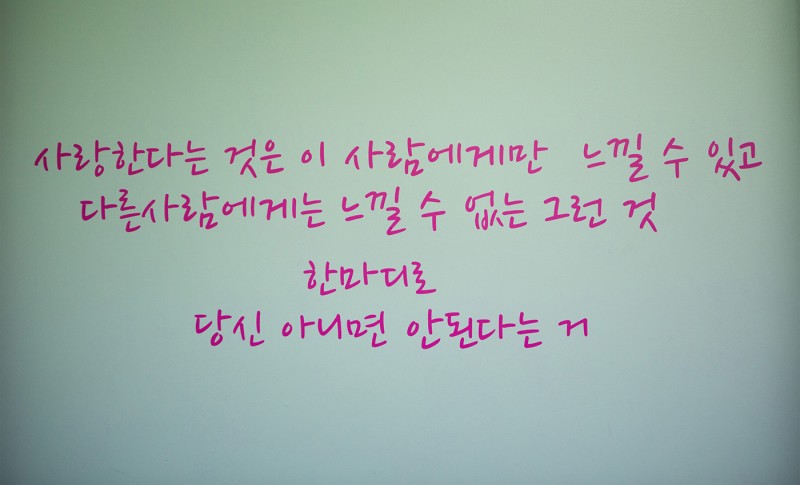 사랑한다는 것은 이 사람에게만 느낄 수 있고
다른사람에게는 느낄 수 없는 그런 것
한마디로
당신 아니면 안된다는 거